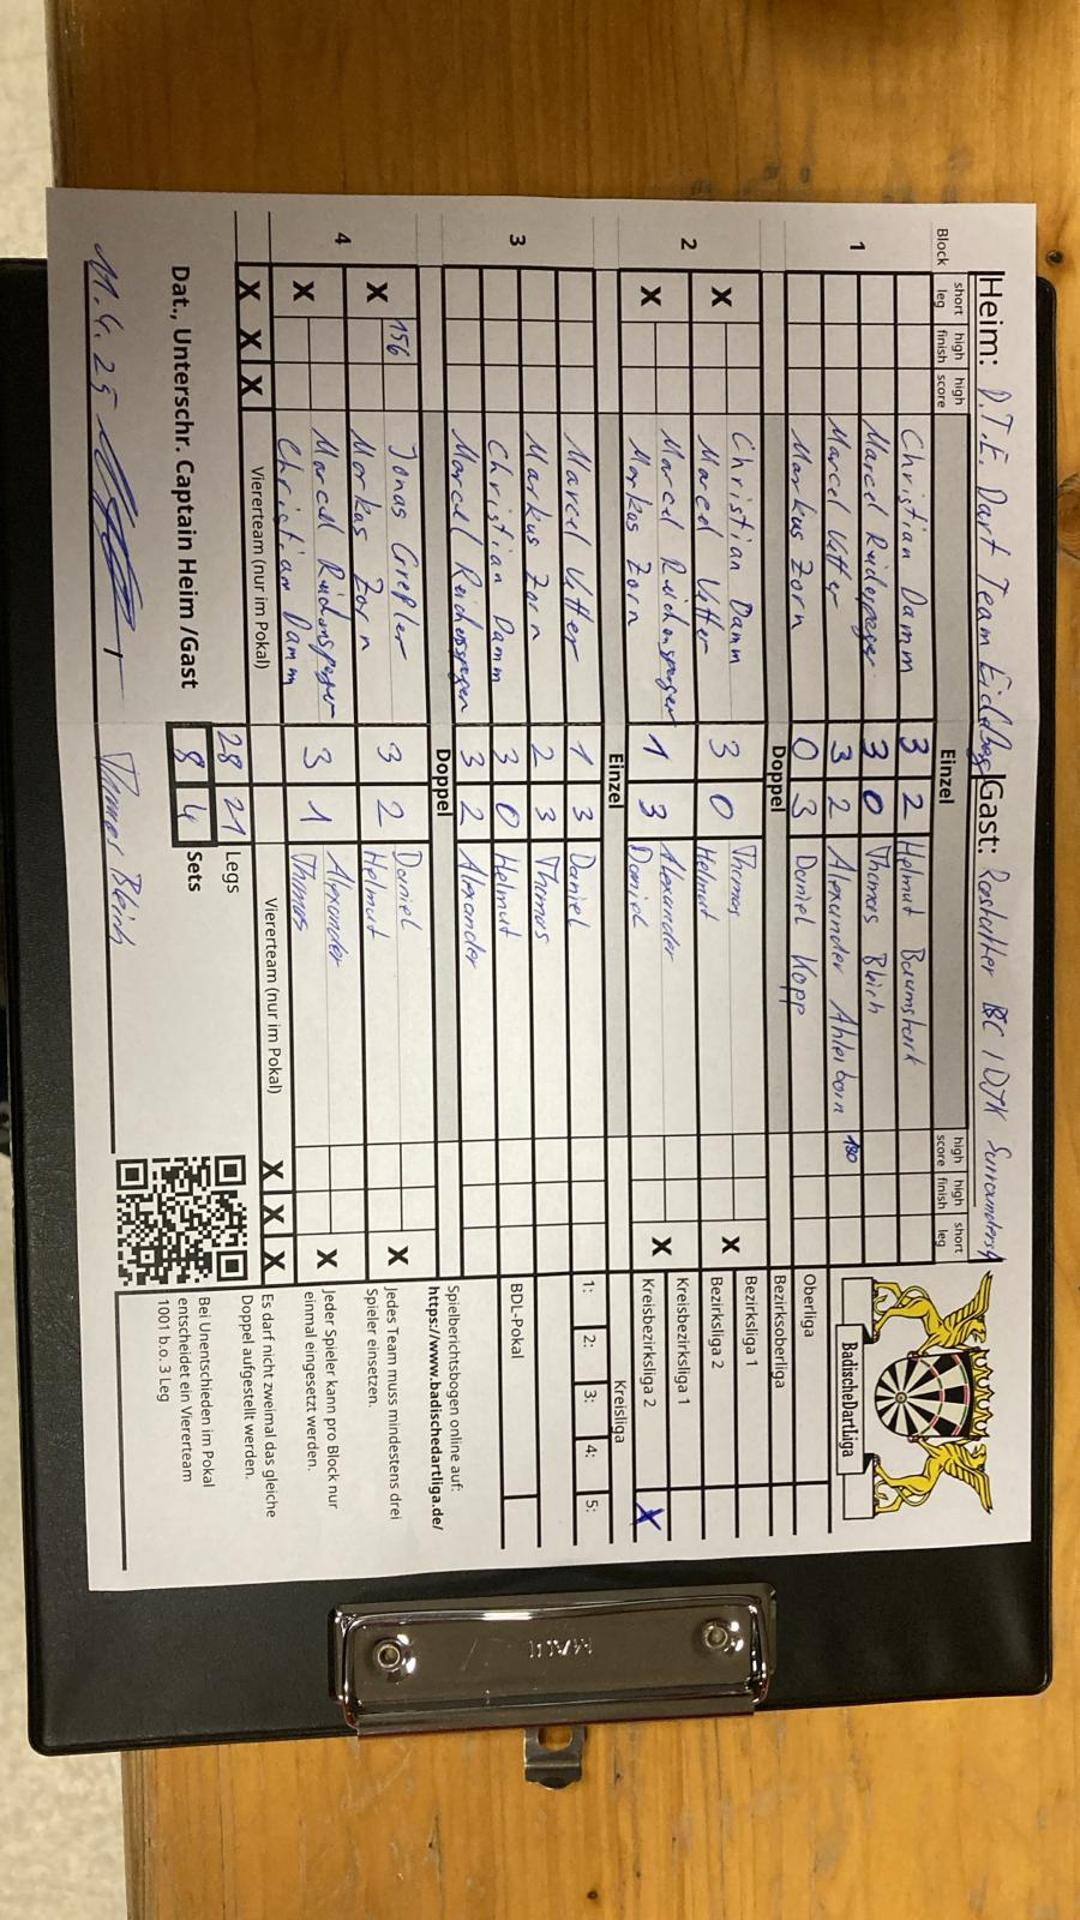 Heim: D.T.E. Dart Team Gast: Rastatter BC / DJK
Block short leg high finish high score Einzel high score high finish short leg
1
Christian Damm 3 2 Helmut
Marcel 3 0 Thomas Bleich
Marcel Utter 3 2 Alexander Ahlerborn 180
Markus Zorn 0 3 Daniel Kopp
Doppel
2
X Christian Damm 3 0 Thomas X
Marcel Utter Helmut
X Marcel 1 3 Alexander X
Markus Zorn Daniel
Einzel
3
Marcel Utter 1 3 Daniel
Markus Zorn 2 3 Thomas
Christian Damm 3 0 Helmut
Marcel 3 2 Alexander
Doppel
4
X 156 Jonas 3 2 Daniel X
Markus Zorn Helmut
X Marcel 3 1 Alexander X
Christian Damm Thomas
X X X Viererteam (nur im Pokal) Viererteam (nur im Pokal) X X X
28 21 Legs
Dat., Unterschr. Captain Heim /Gast 8 4 Sets
11.4.25 Thomas Bleich
BadischeDartLiga
Oberliga
Bezirksoberliga
Bezirksliga 1
Bezirksliga 2
Kreisbezirksliga 1
Kreisbezirksliga 2 X
Kreisliga
1: 2: 3: 4: 5:
BDL-Pokal
Spielberichtsbogen online auf:
https://www.badischedartliga.de/
Jedes Team muss mindestens drei
Spieler einsetzen.
Jeder Spieler kann pro Block nur
einmal eingesetzt werden.
Es darf nicht zweimal das gleiche
Doppel aufgestellt werden.
Bei Unentschieden im Pokal
entscheidet ein Viererteam
1001 b.o. 3 Leg